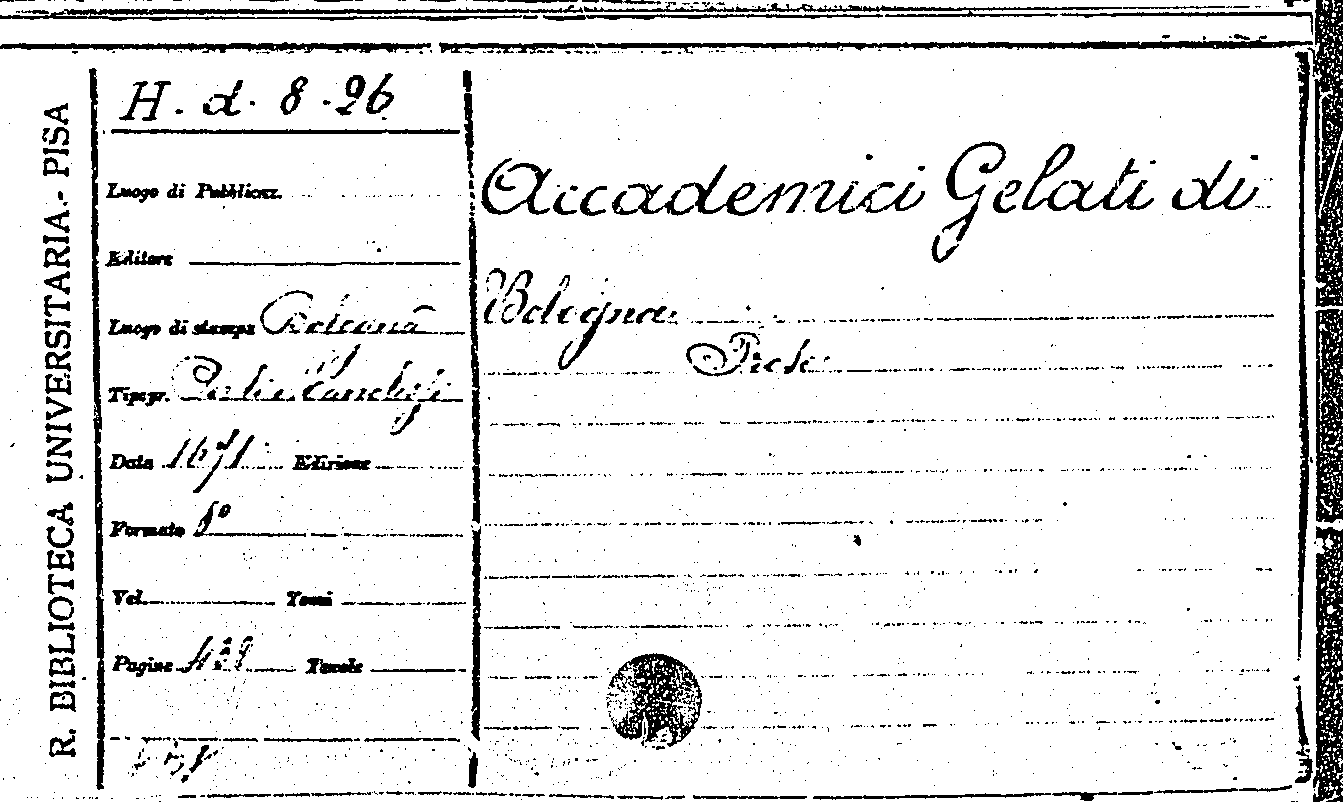 R. BIBLIOTECA UNIVERSITARIA - PISA
H. d. 8. 26
Luogo di Pubblicaz.
Editore
Luogo di stampa Bologna
Tipogr.
Data 1671 Edizione
Formato
Vol. Tomi
Pagine Tavole
Accademici Gelati di
Bologna